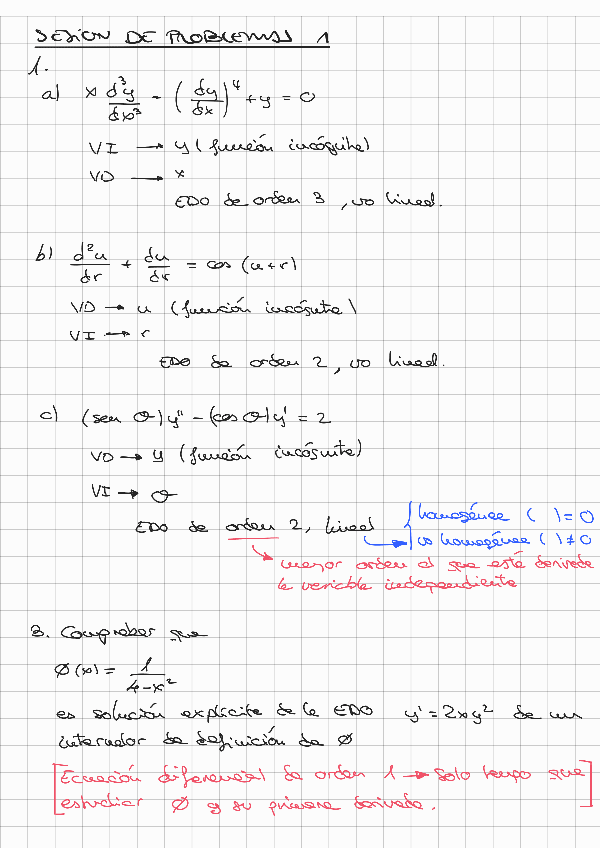 SESIÓN DE PROBLEMAS 1
1.
a) x d³y/dx³ - (dy/dx)⁴ + y = 0
VI → y (función incógnita)
VD → x
EDO de orden 3, no lineal.
b) d²u/dr + du/dr = cos (u+r)
VD → u (función incógnita)
VI → r
EDO de orden 2, no lineal.
c) (sen θ)y'' - (cos θ)y' = 2
VD → y (función incógnita)
VI → θ
EDO de orden 2, lineal { homogénea ( ) = 0
→ no homogénea ( ) ≠ 0
→ mayor orden al que está derivada
la variable independiente
3. Comprobar que
Ø(x) = 1/(4-x²)
es solución explícita de la EDO y' = 2xy² de un
intervalo de definición de Ø
[Ecuación diferencial de orden 1 → Solo tengo que
estudiar Ø y su primera derivada.]